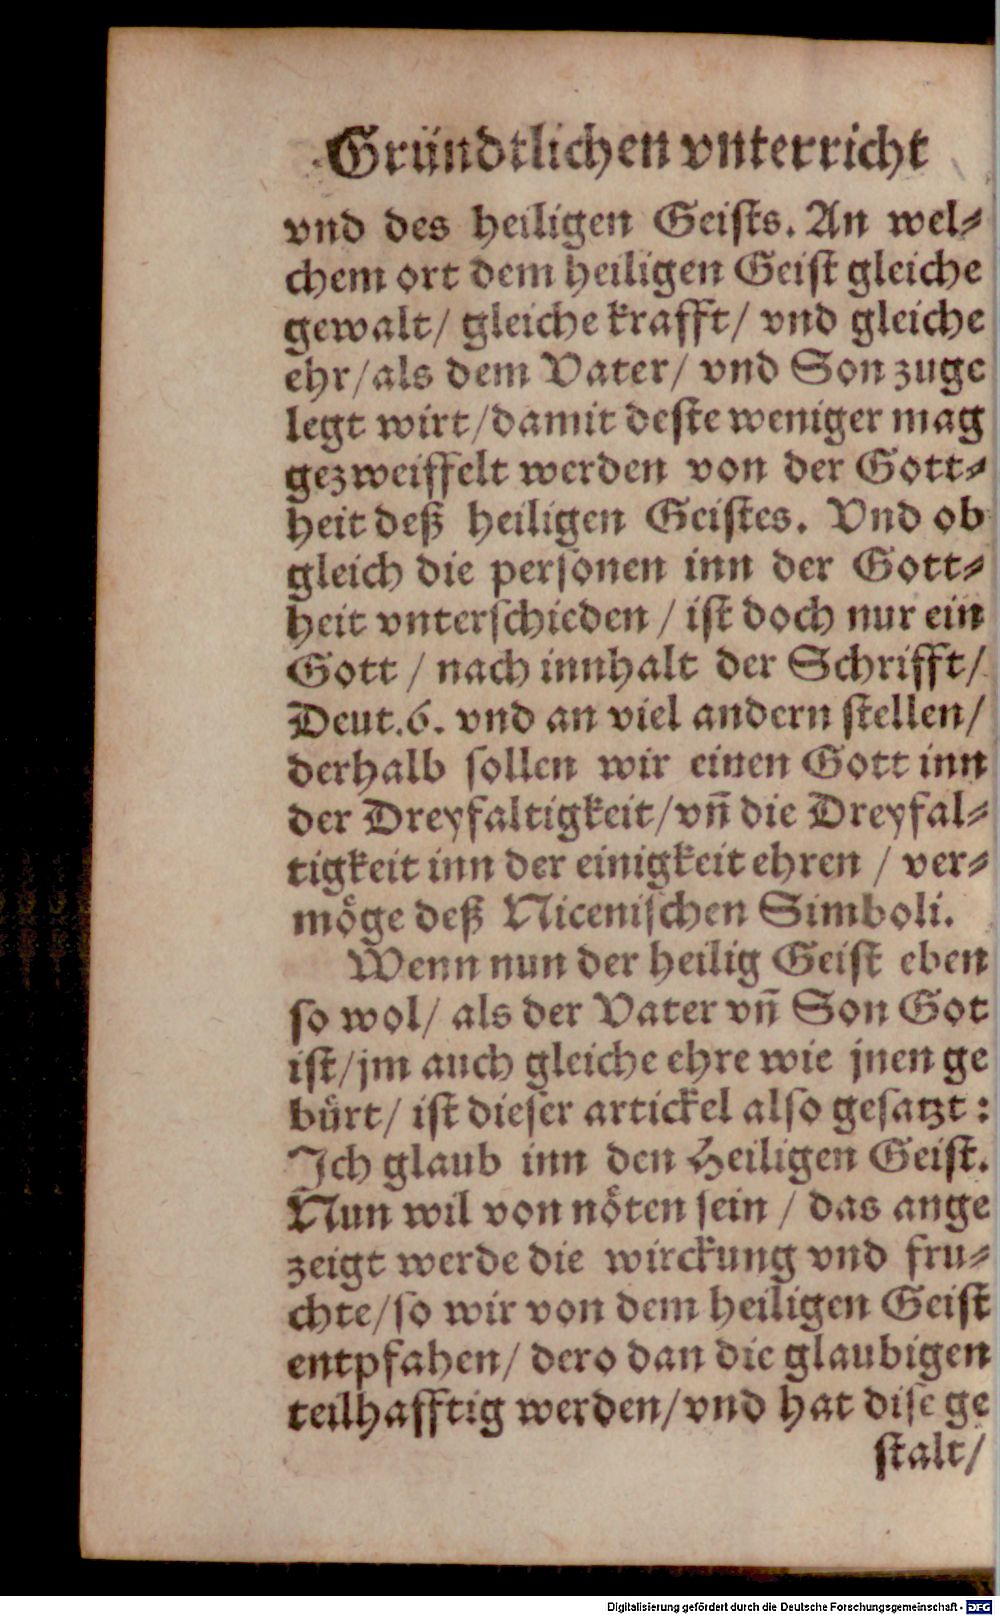 Gründtlichen vnterricht
vnd des heiligen Geists. An wel⸗
chem ort dem heiligen Geist gleiche
gewalt/ gleiche krafft/ vnd gleiche
ehr/als dem Vater/ vnd Son zuge
legt wirt/damit deste weniger mag
gezweiffelt werden von der Gott⸗
heit deß heiligen Geistes. Vnd ob
gleich die personen inn der Gott⸗
heit vnterschieden / ist doch nur ein
Gott / nach innhalt der Schrifft/
Deut.6. vnd an viel andern stellen/
derhalb sollen wir einen Gott inn
der Dreyfaltigkeit/vn̄ die Dreyfal⸗
tigkeit inn der einigkeit ehren / ver⸗
möge deß Nicenischen Simboli.
Wenn nun der heilig Geist eben
so wol/ als der Vater vn̄ Son Got
ist/jm auch gleiche ehre wie jnen ge
bürt/ ist dieser artickel also gesatzt:
Ich glaub inn den Heiligen Geist.
Nun wil von nöten sein / das ange
zeigt werde die wirckung vnd fru⸗
chte/so wir von dem heiligen Geist
entpfahen/ dero dan die glaubigen
teilhafftig werden/vnd hat dise ge
stalt/
Digitalisierung gefördert durch die Deutsche Forschungsgemeinschaft - DFG